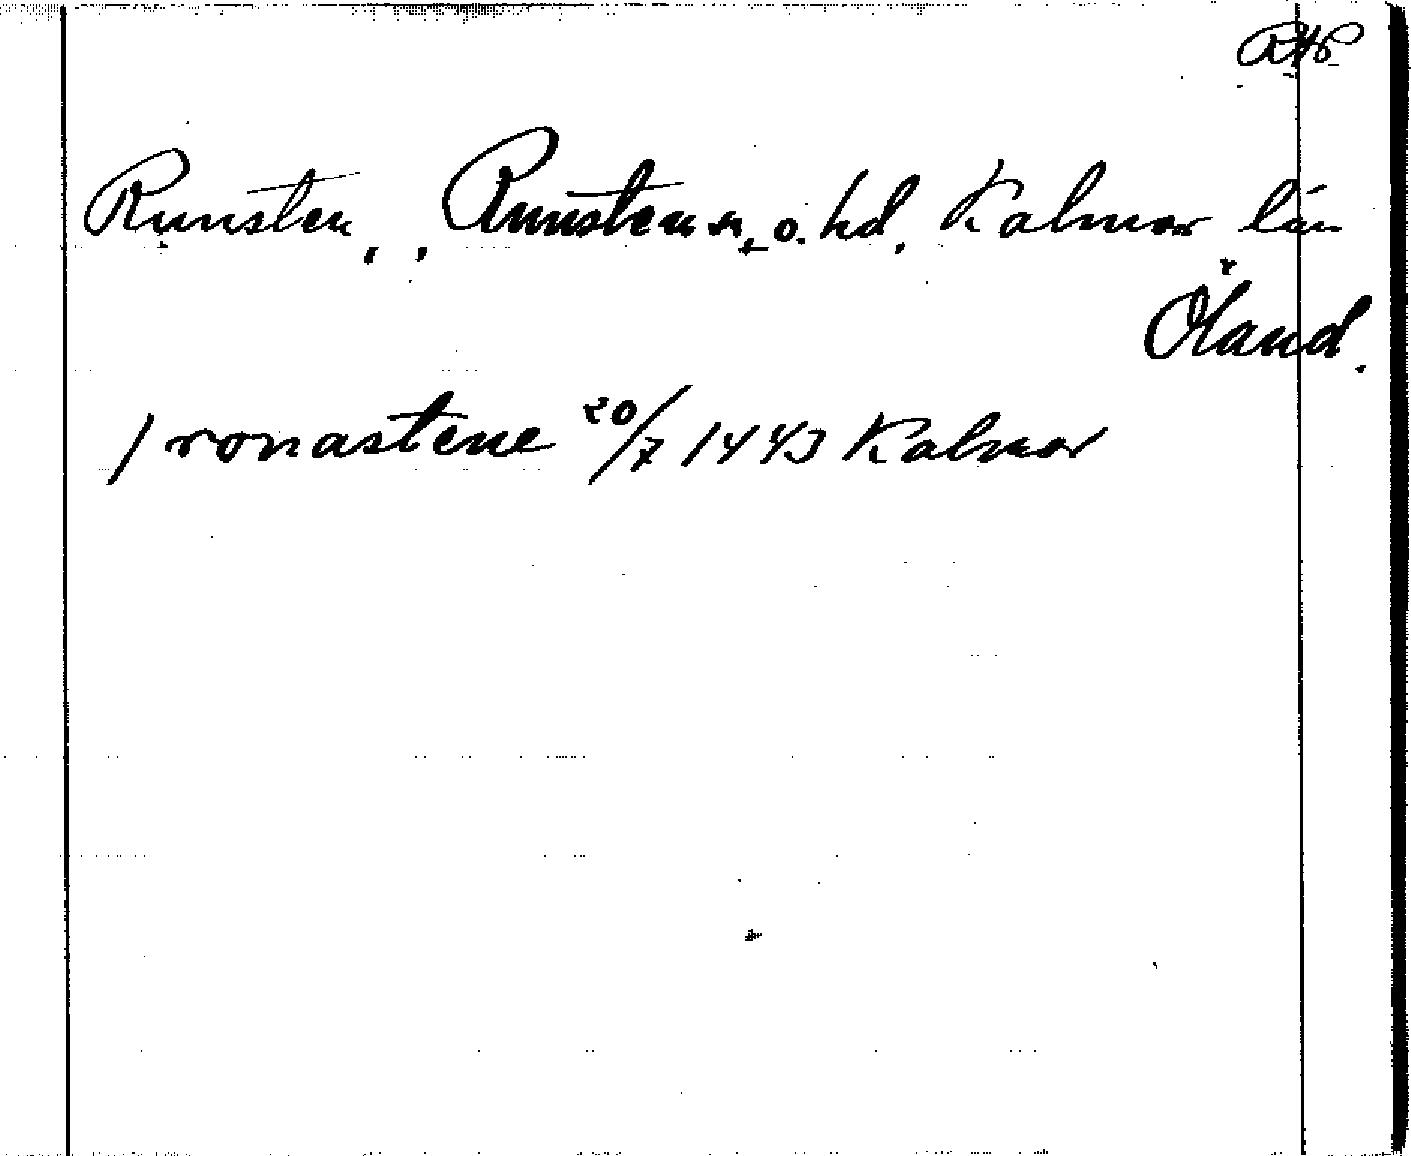 RAP
Runsten, Runstens sn. o. hd, Kalmar län
Öland.
J ronastene 20/7 1443 Kalmar